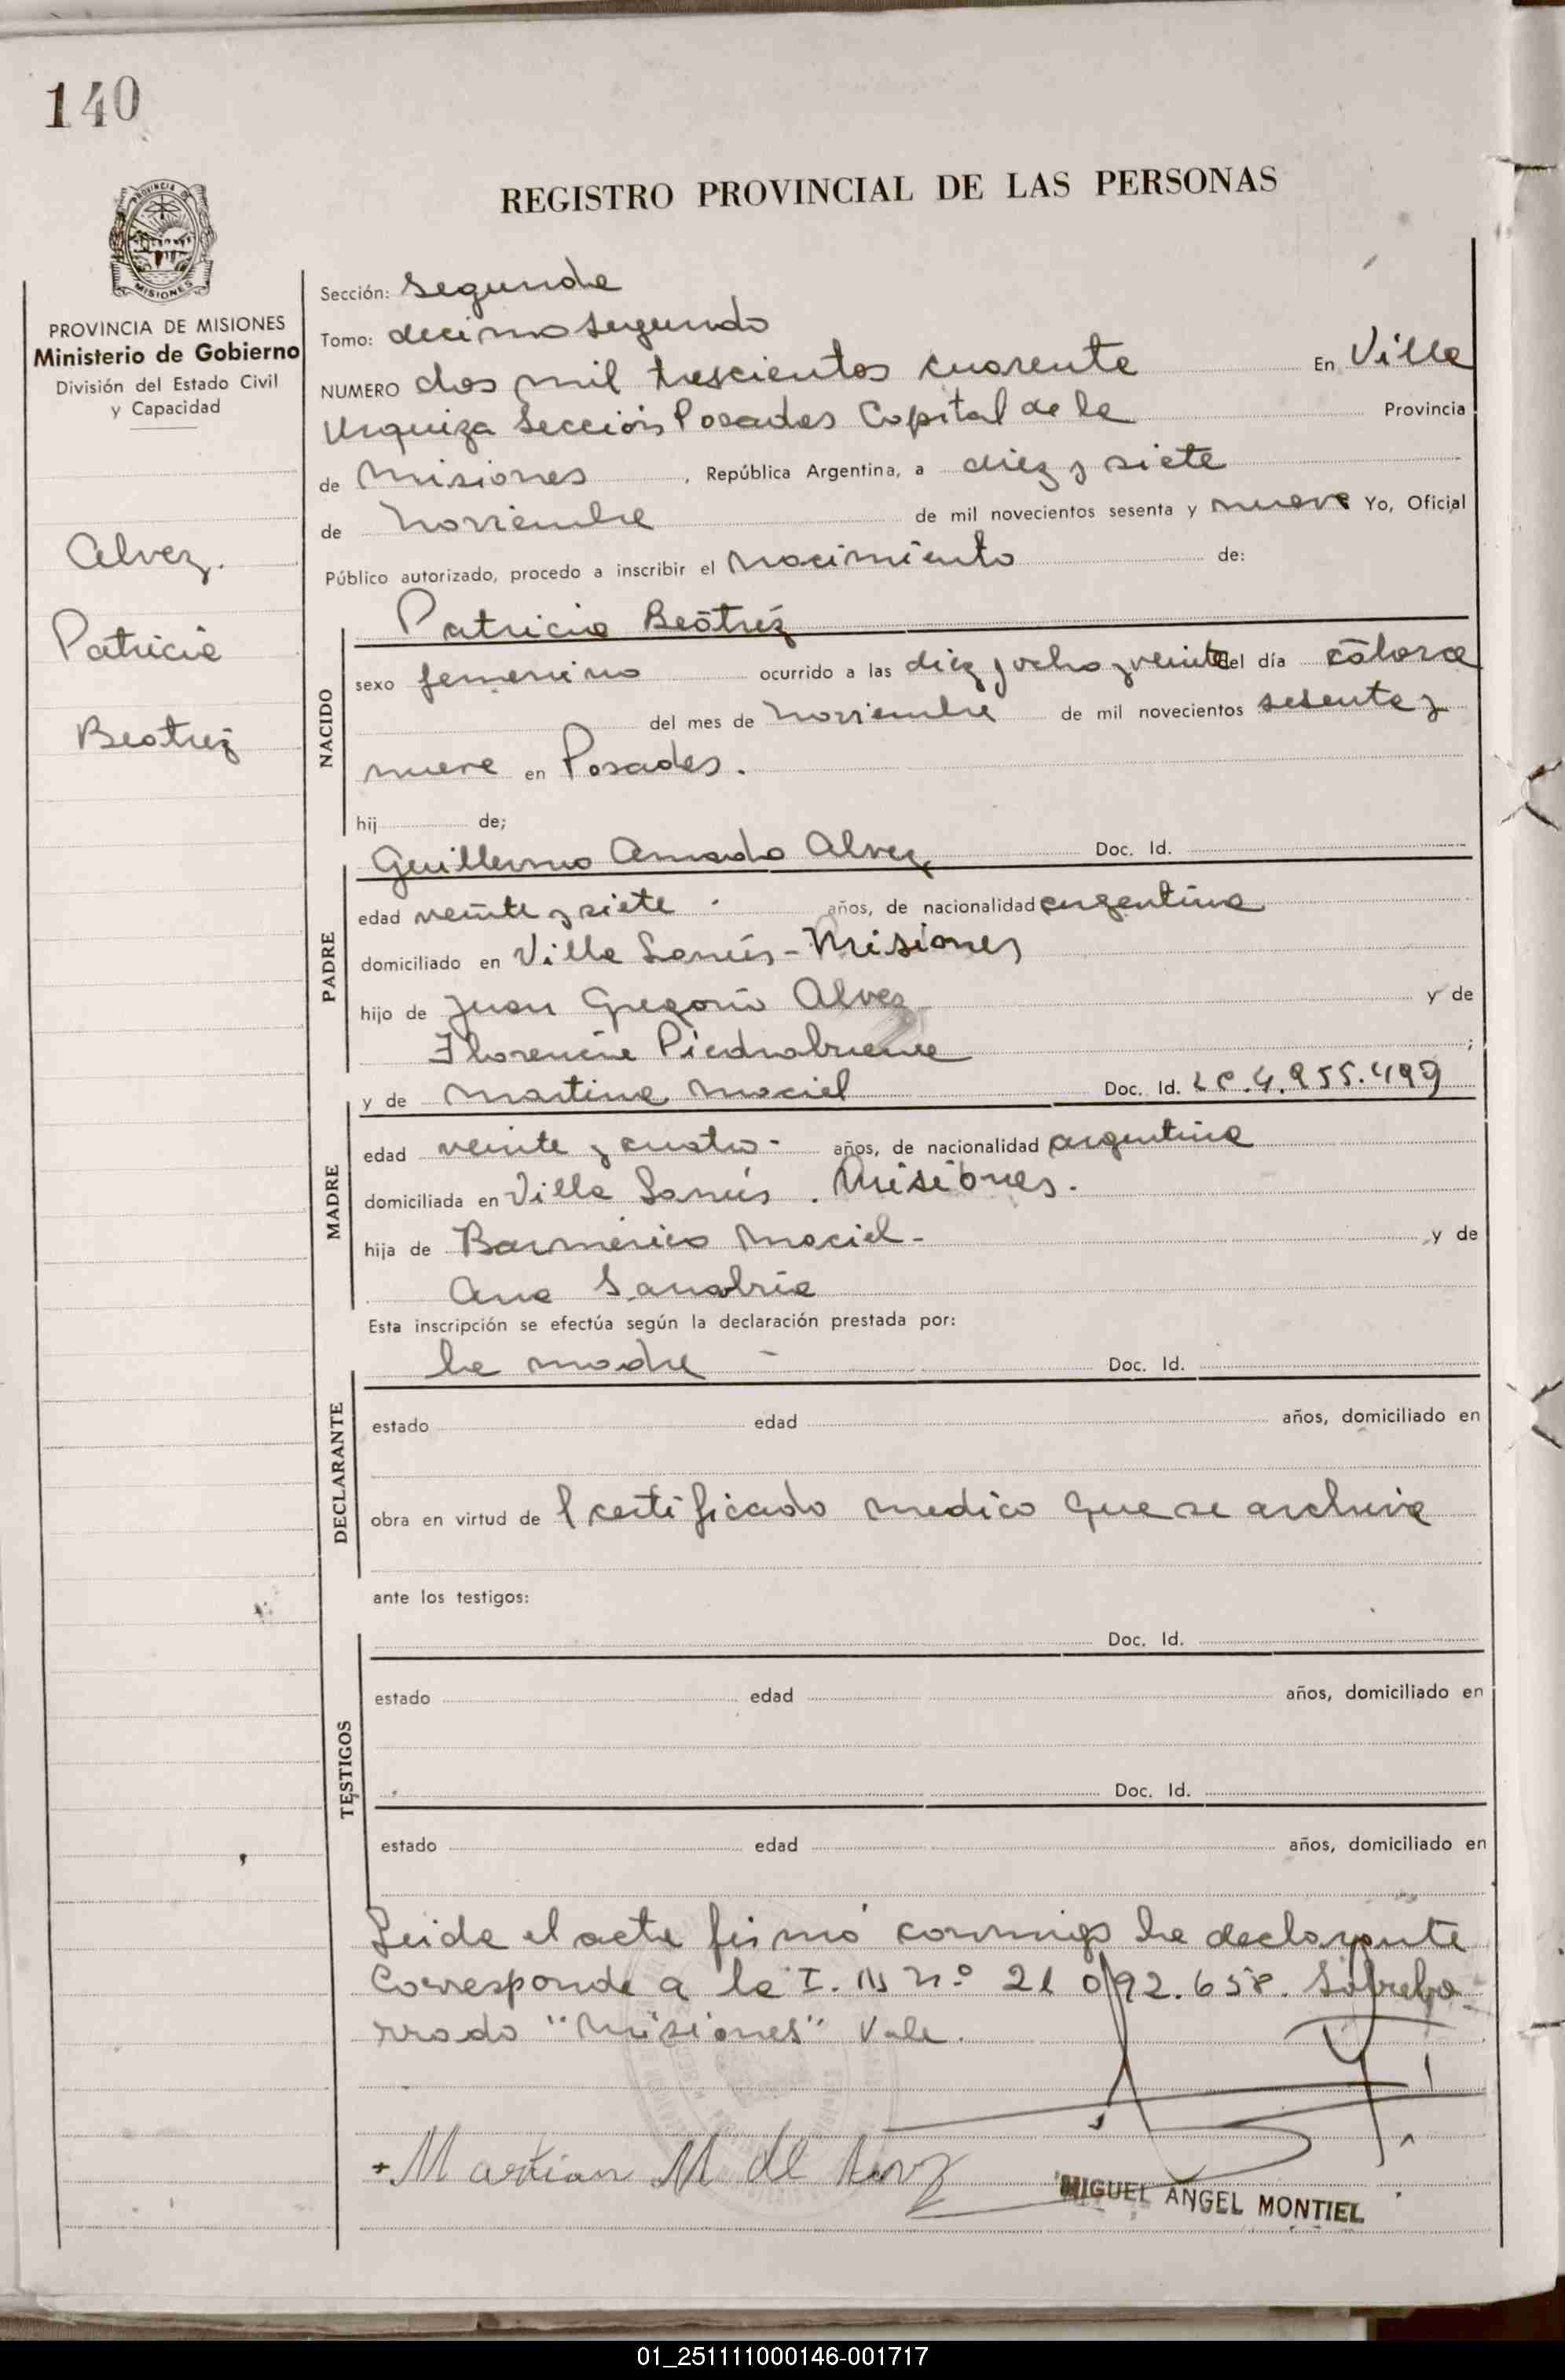 140
REGISTRO PROVINCIAL DE LAS PERSONAS
MISIONES
PROVINCIA DE MISIONES
Ministerio de Gobierno
División del Estado Civil
y Capacidad
Alvez.
Patricia
Beatriz
Sección: Segunda
Tomo: decimo segundo
NUMERO dos mil trescientos cuarenta En Villa
Urquiza Sección Posadas Capital de la Provincia
de Misiones, República Argentina, a diez y siete
de noviembre de mil novecientos sesenta y nueve Yo, Oficial
Público autorizado, procedo a inscribir el nacimiento de:
Patricia Beatriz
NACIDO
sexo femenino ocurrido a las diez y ocho y veinte del día catorce
del mes de noviembre de mil novecientos sesenta y
nueve en Posadas.
hij de;
Guillermo Amado Alvez Doc. Id.
PADRE
edad veinte y siete años, de nacionalidad argentina
domiciliado en Villa Lanús - Misiones
hijo de Juan Gregorio Alvez y de
Florencia Piedrabuena ;
y de Martina Maciel Doc. Id. LC.4.955.499
MADRE
edad veinte y cuatro - años, de nacionalidad argentina
domiciliada en Villa Lanús. Misiones.
hija de Barmerico Maciel - y de
Ana Sanabria
Esta inscripción se efectúa según la declaración prestada por:
la madre - Doc. Id.
DECLARANTE
estado edad años, domiciliado en
obra en virtud de l certificado medico que se archiva
ante los testigos:
Doc. Id.
TESTIGOS
estado edad años, domiciliado en
Doc. Id.
estado edad años, domiciliado en
Leida el acta firmó conmigo la declarante
Corresponde a la I. N nº 21 092.658. Sobrebo-
rrado "Misiones" Vale.
M de
MIGUEL ANGEL MONTIEL
01_251111000146-001717